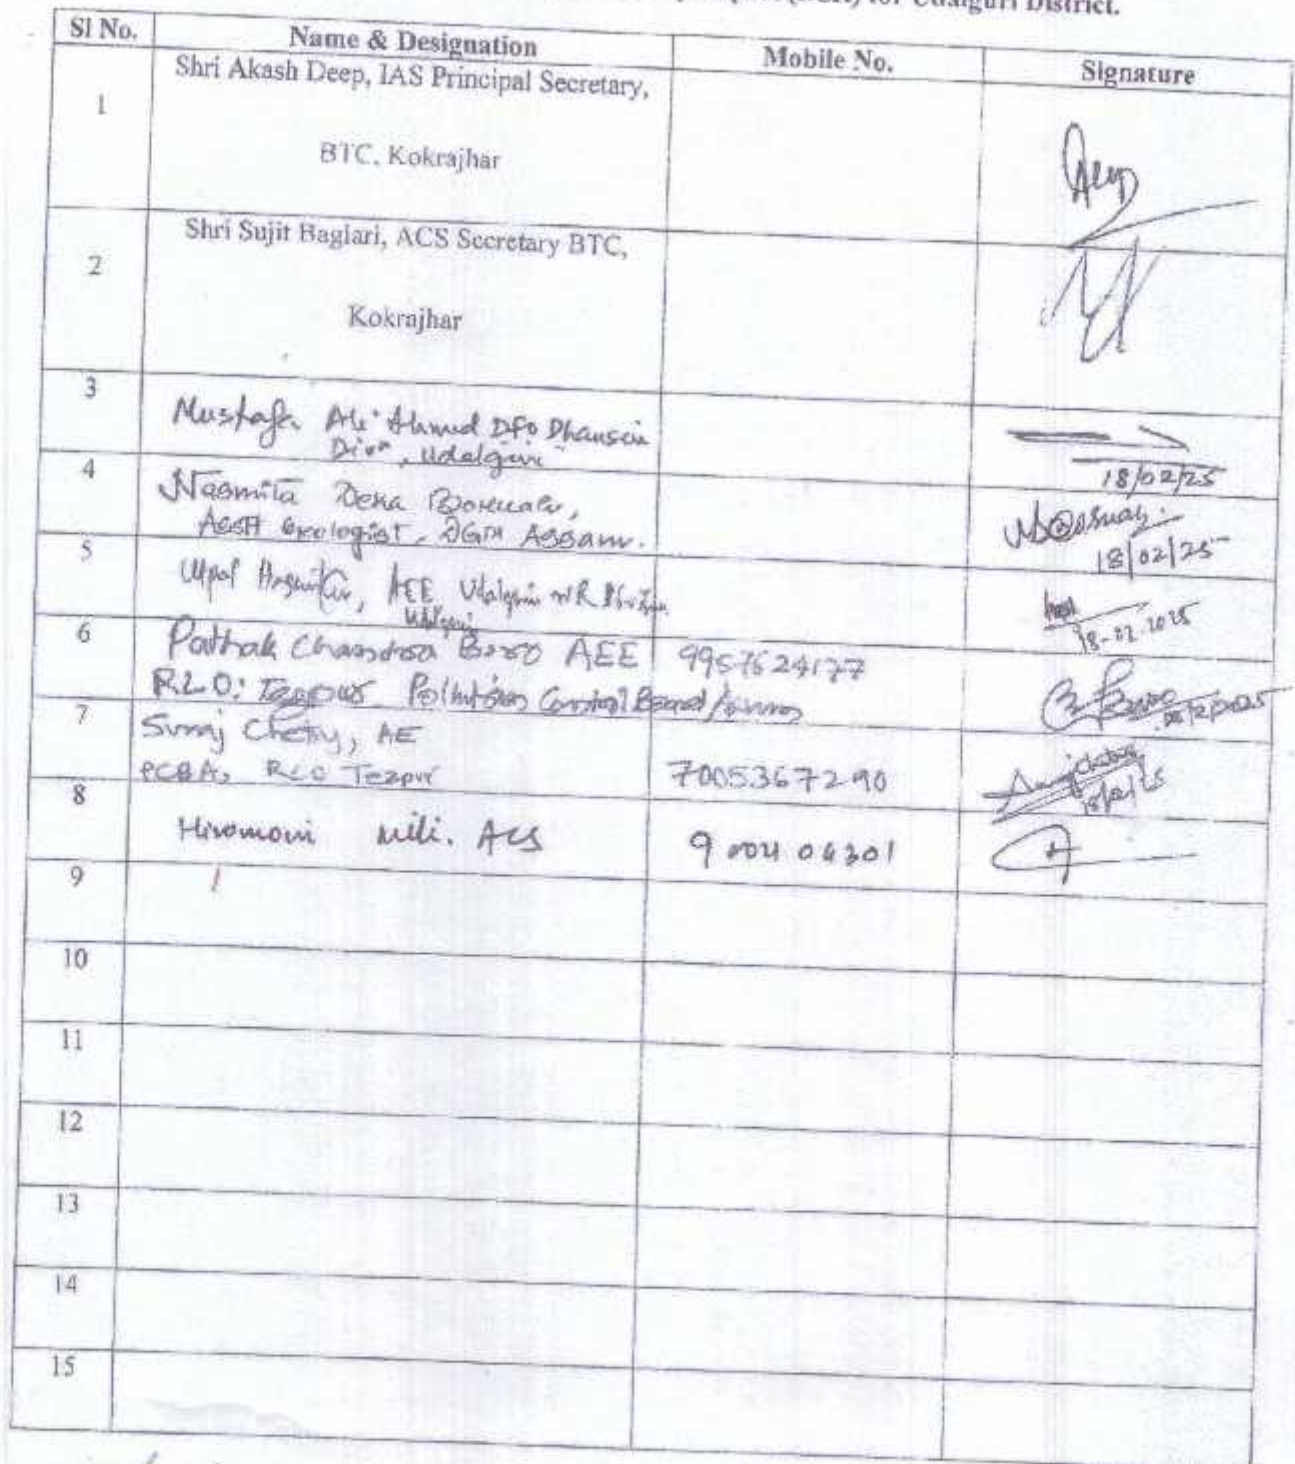 (DSR) for Udalguri District.
Sl No. Name & Designation Mobile No. Signature
1 Shri Akash Deep, IAS Principal Secretary,
BTC, Kokrajhar
2 Shri Sujit Baglari, ACS Secretary BTC,
Kokrajhar
3 Mustafa Ali Ahmed DFO Dhansiri
Divn, Udalguri
18/02/25
4 Nasmita Deka Boruah,
Asstt Geologist, DGM Assam.
18/02/25
5 Utpal Hazarika, AEE Udalguri WR Division
Udalguri
18-02-2025
6 Pathak Chandra Boro AEE 9957624177
R.L.O: Tezpur Pollution Control Board/Assam
7 Suraj Chetry, AE
PCBA, RLO Tezpur 7005367290
8 Hiromoni Mili. ACS
9
10
11
12
13
14
15